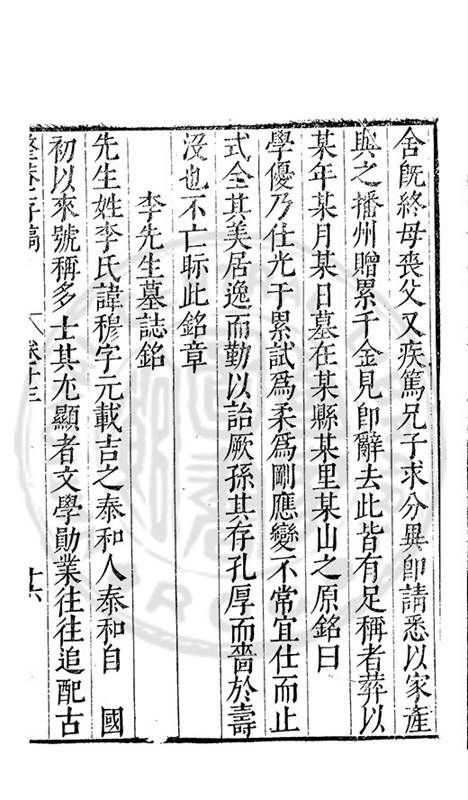 舍旣終母喪父又疾篤兄子求分異卽請悉以家產
與之播州贈累千金見卽辭去此皆有足稱者葬以
某年某月某日墓在某縣某里某山之原銘曰
學優乃仕光于累試爲柔爲剛應變不常宜仕而止
式全其美居逸而勤以詒厥孫其存孔厚而嗇於壽
没也不亡眎此銘章
李先生墓誌銘
先生姓李氏諱穆字元載吉之泰和人泰和自　國
初以來號稱多士其尤顯者文學勛業往往追配古
整菴存稿　卷十三　十六